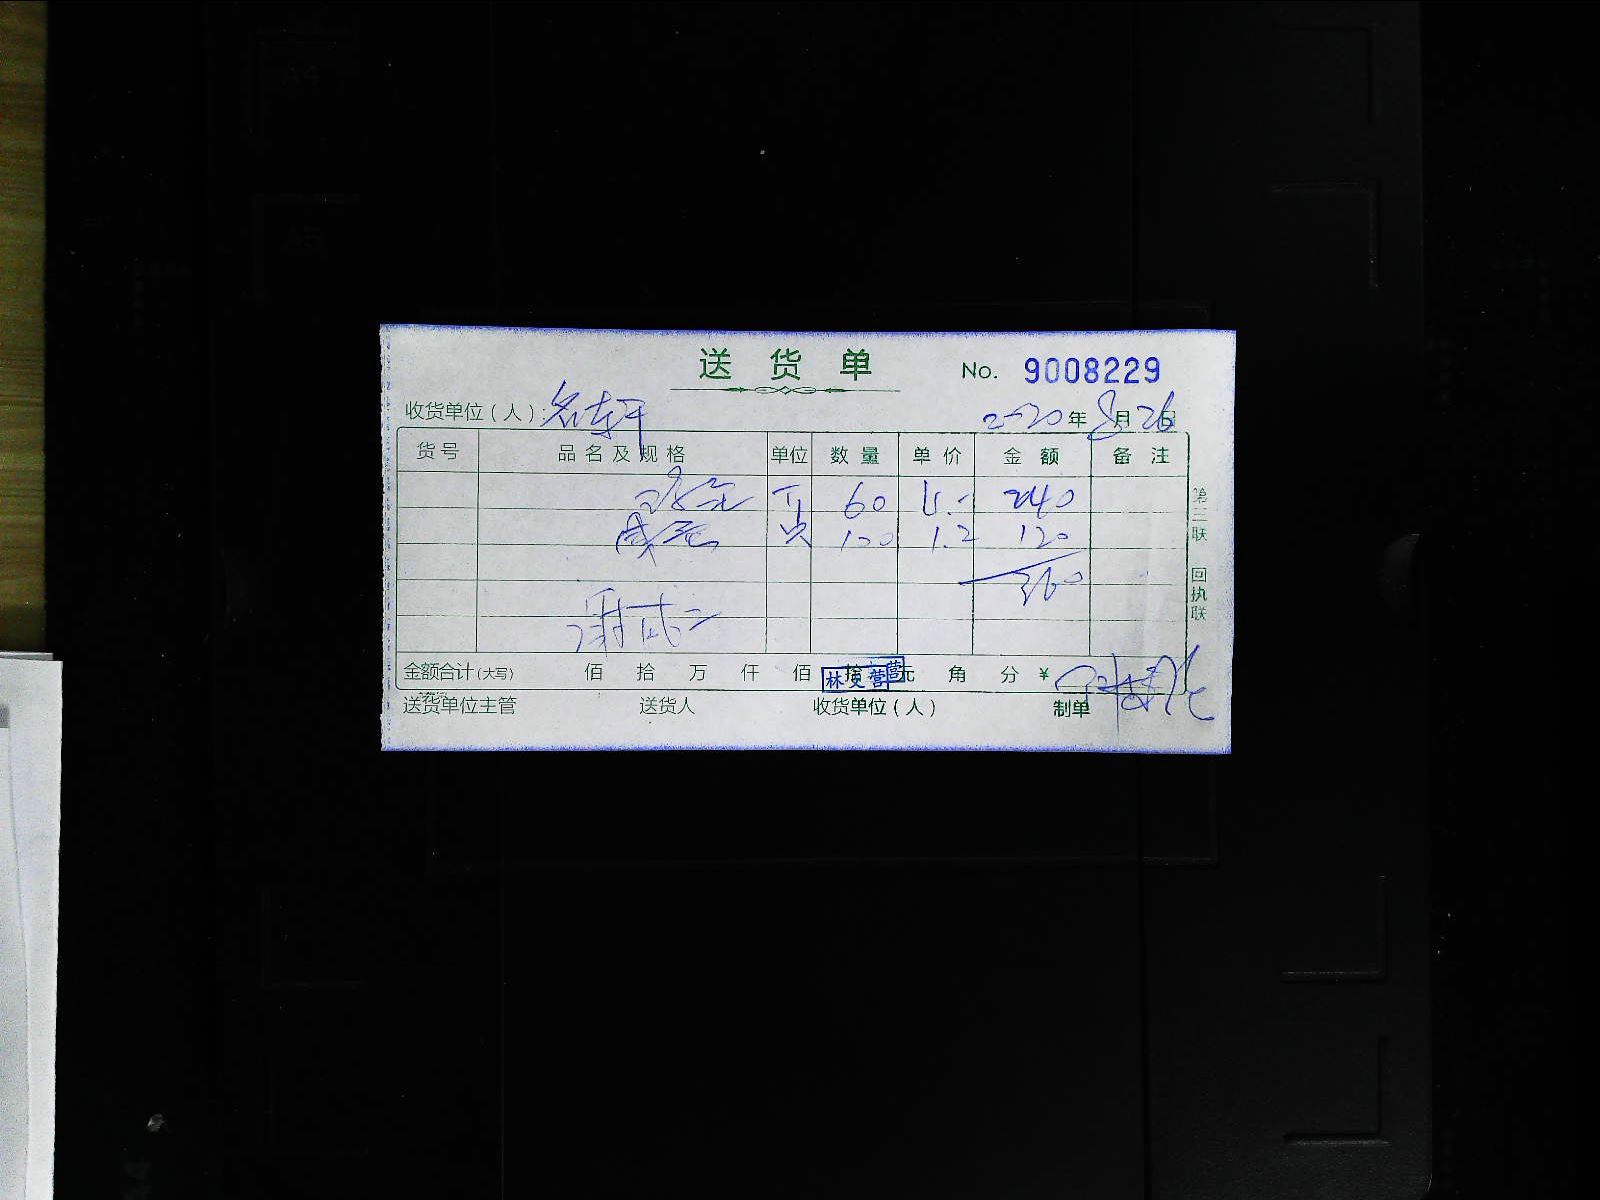 送货单 No. 9008229
收货单位（人）：名轩 2020年8月26日
货号 品名及规格 单位 数量 单价 金额 备注
60 4.- 240
只 100 1.2 120
360
第三联 回执联
金额合计(大写) 佰 拾 万 仟 佰 拾 元 角 分 ¥
送货单位主管 送货人 收货单位（人） 制单